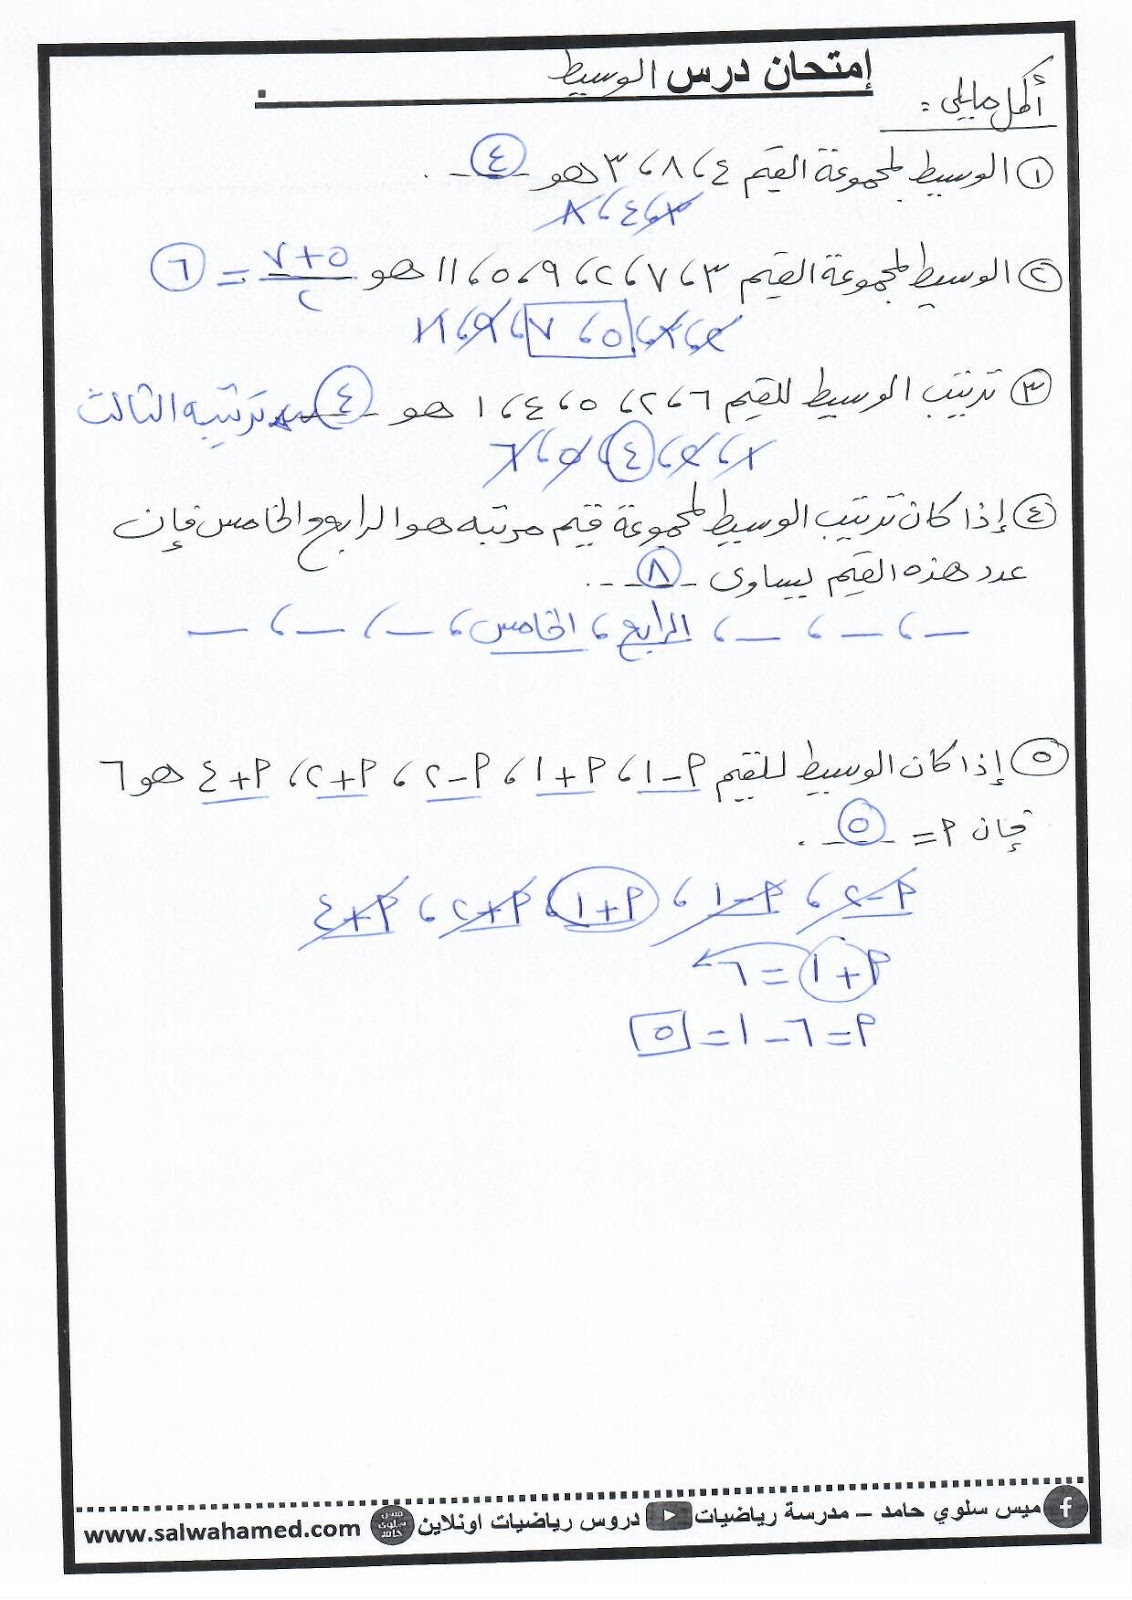 إمتحان درس الوسيط
أكمل مايلى :
① الوسيط لمجموعة القيم ٤ ، ٨ ، ٣ هو ٤ .
٣ ، ٤ ، ٨
② الوسيط لمجموعة القيم ٣ ، ٧ ، ٢ ، ٩ ، ٥ ، ١١ هو ٥+٧ / ٢ = ٦
٢ ، ٣ ، ٥ ، ٧ ، ٩ ، ١١
③ ترتيب الوسيط للقيم ٦ ، ٢ ، ٥ ، ٤ ، ١ هو ٤ ترتيبه الثالث
١ ، ٢ ، ٤ ، ٥ ، ٦
④ إذا كان ترتيب الوسيط لمجموعة قيم مرتبه هو الرابع والخامس فإن
عدد هذه القيم يساوى ٨ ...
— ، — ، — ، الرابع ، الخامس ، — ، — ، —
⑤ إذا كان الوسيط للقيم م-١ ، م+١ ، م-٢ ، م+٢ ، م+٤ هو ٦
فإن م = ٥ .
م-٢ ، م-١ ، م+١ ، م+٢ ، م+٤
م+١ = ٦
م = ٦ - ١ = ٥
ميس سلوي حامد – مدرسة رياضيات دروس رياضيات اونلاين www.salwahamed.com